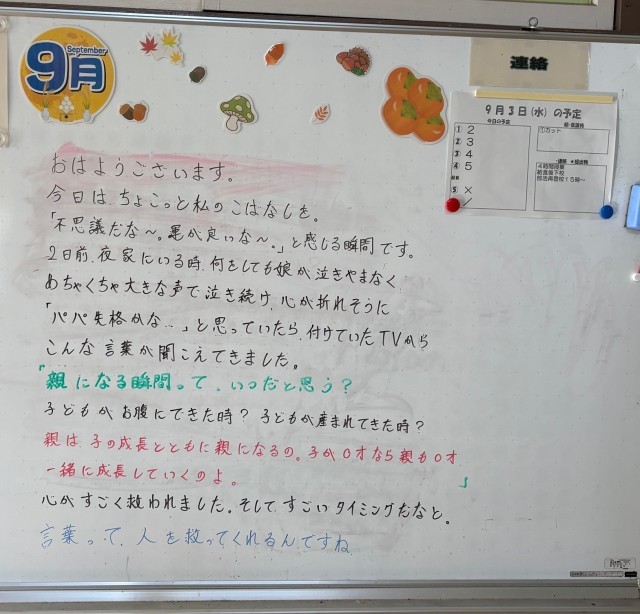 9月
September
連絡
9月3日(水)の予定
今日の予定
① 2
② 3
③ 4
④ 5
⑤ ×
①カット
4時間授業
給食後下校
部活再登校15時〜
おはようございます。
今日は、ちょこっと私のこはなしを。
「不思議だな〜。運が良いな〜。」と感じる瞬間です。
2日前、夜、家にいる時、何をしても娘が泣きやまなく
めちゃくちゃ大きな声で泣き続け、心が折れそうに
「パパ失格かな…」と思っていたら、付けていたTVから
こんな言葉が聞こえてきました。
「親になる瞬間って、いつだと思う?
子どもがお腹にできた時? 子どもが産まれてきた時?
親は、子の成長とともに親になるの。子が0才なら親も0才
一緒に成長していくのよ。」
心がすごく救われました。そして、すごいタイミングだなと。
言葉って、人を救ってくれるんですね